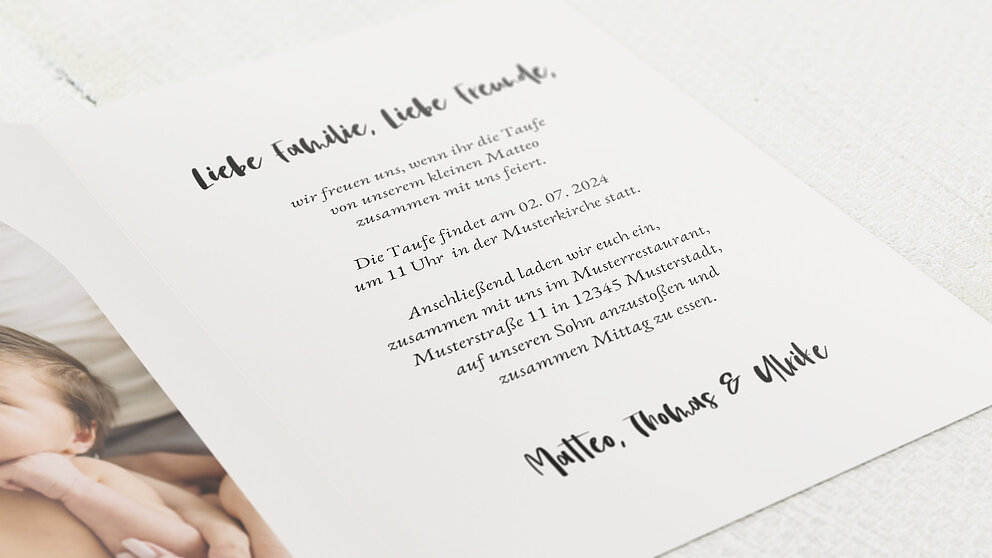 Liebe Familie, Liebe Freunde,
wir freuen uns, wenn ihr die Taufe
von unserem kleinen Matteo
zusammen mit uns feiert.
Die Taufe findet am 02. 07. 2024
um 11 Uhr in der Musterkirche statt.
Anschließend laden wir euch ein,
zusammen mit uns im Musterrestaurant,
Musterstraße 11 in 12345 Musterstadt,
auf unseren Sohn anzustoßen und
zusammen Mittag zu essen.
Matteo, Thomas & Ulrike